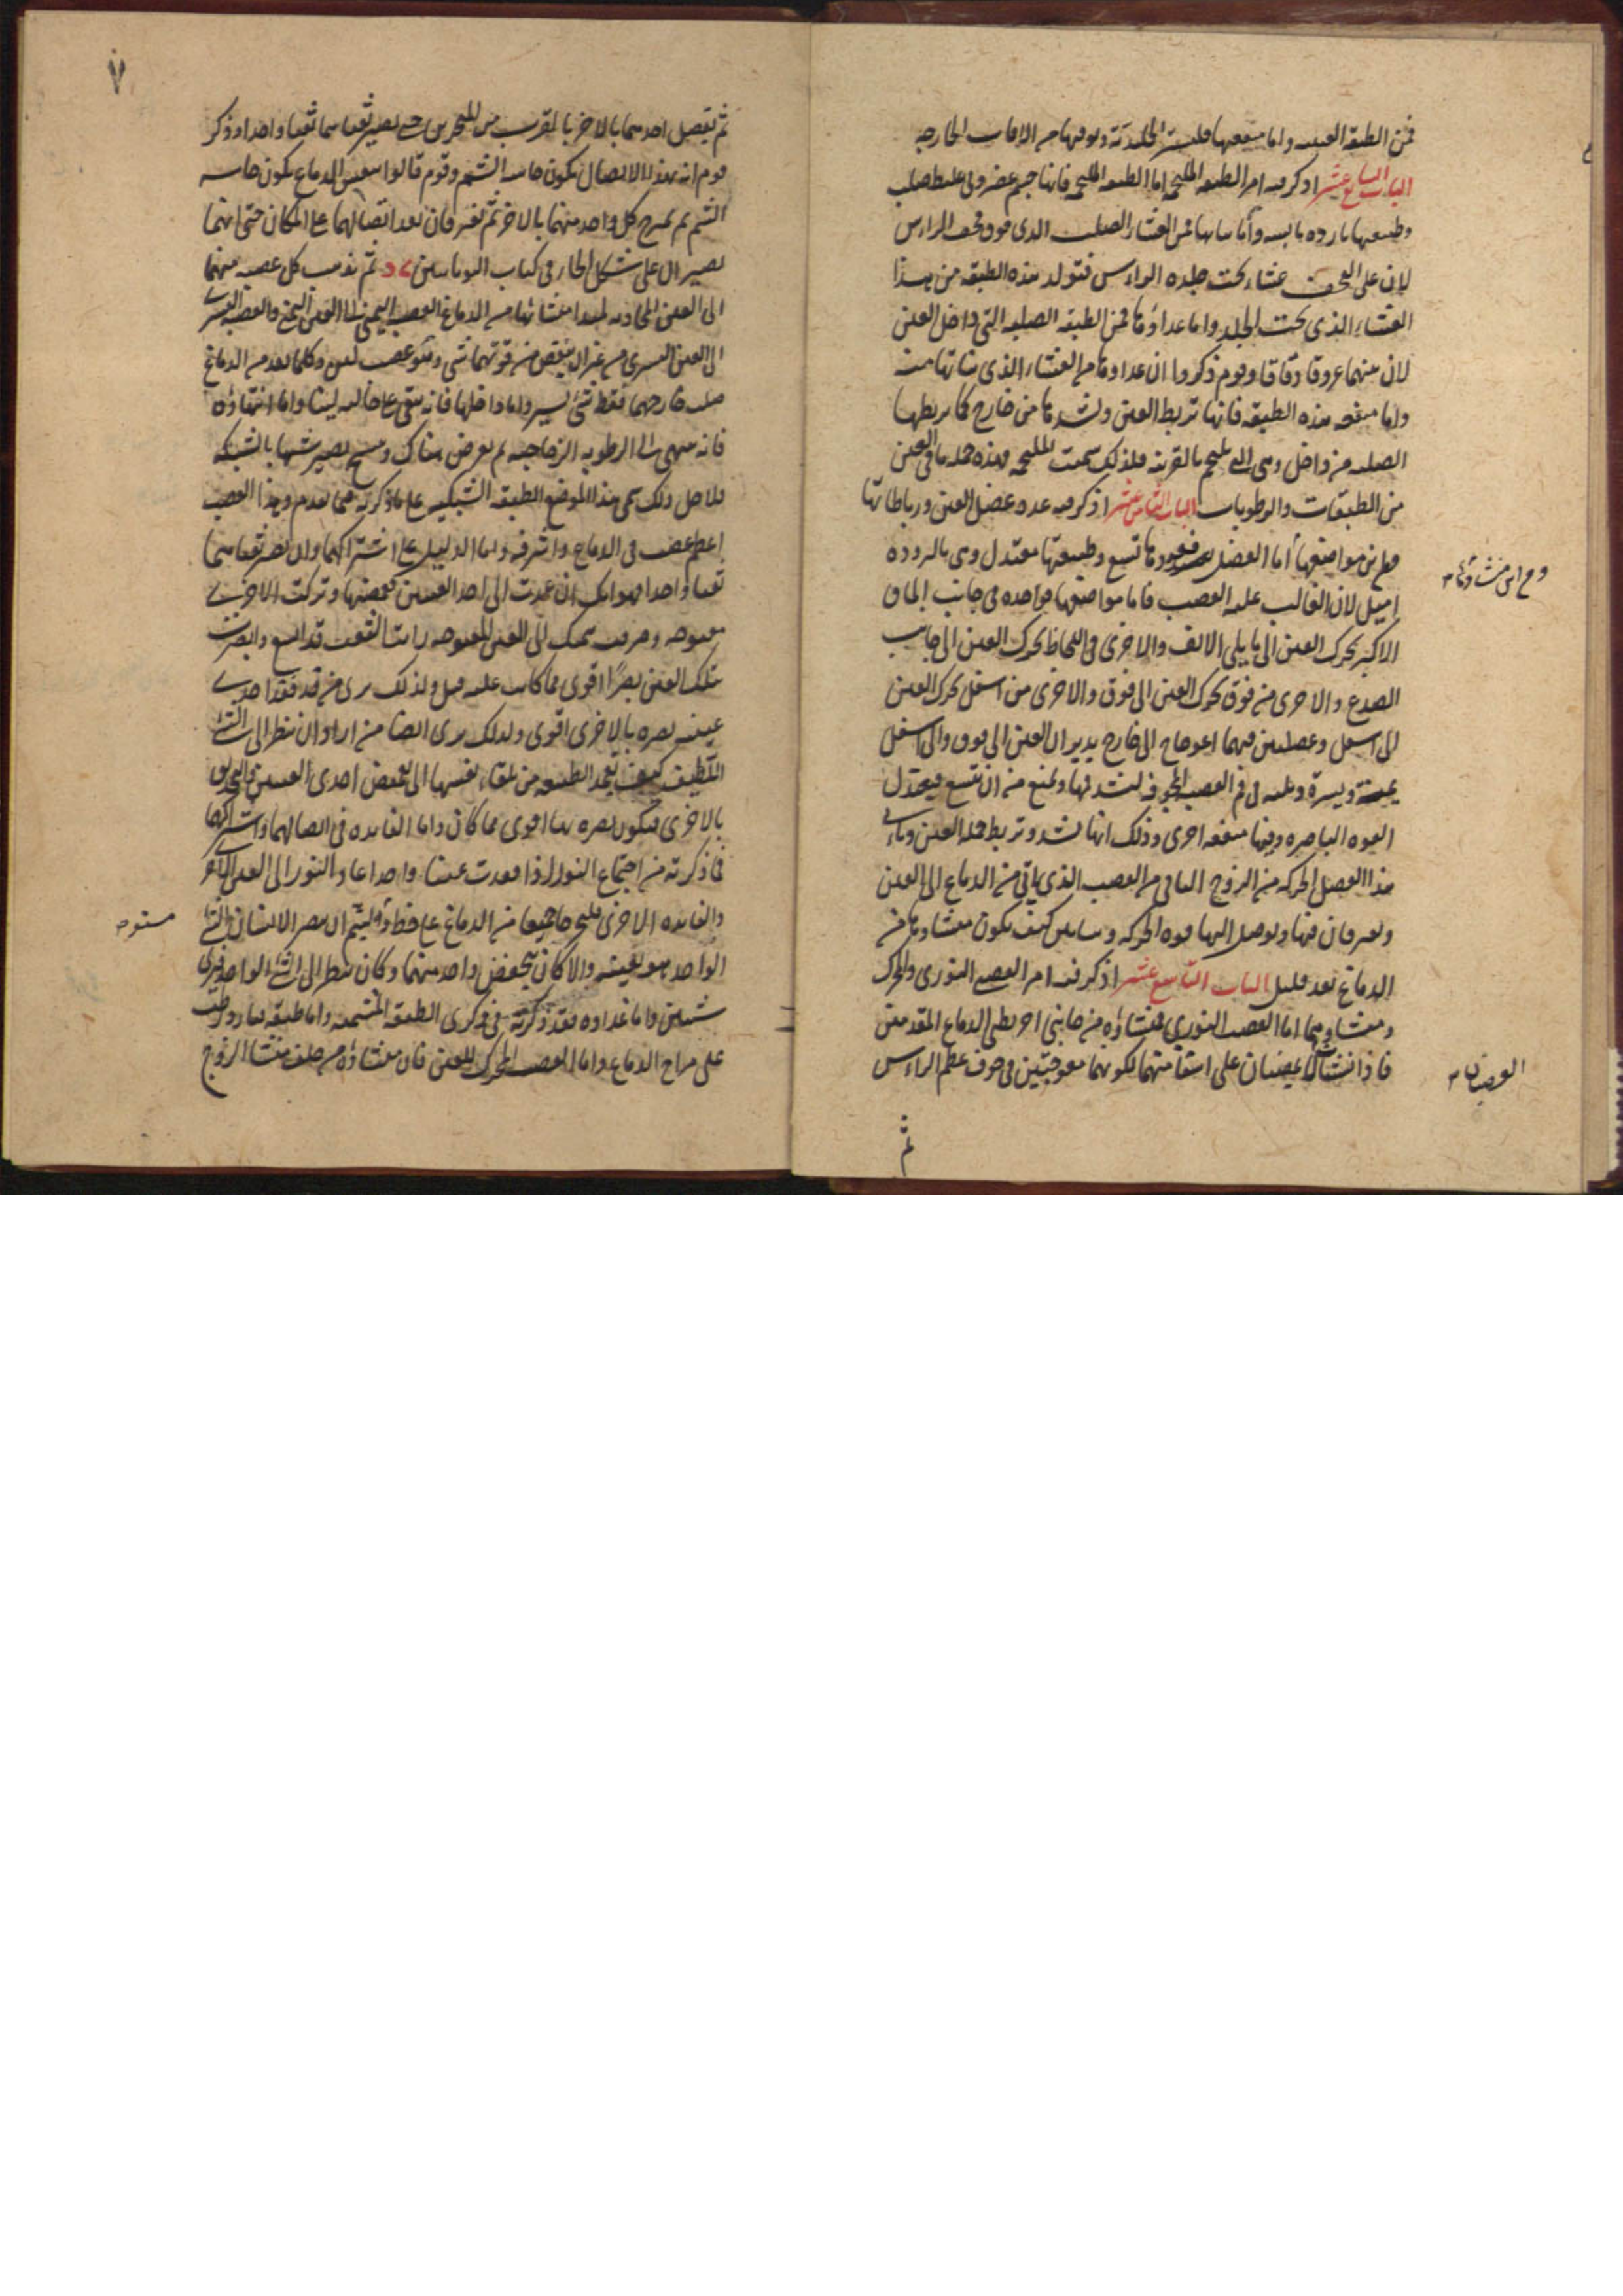 فمن الطبقة العنبيه واما منفعتها فلتستر الجليدية وتوقيها من الافات الخارجه
الباب السابع عشر اذكر فيه امر الطبقه الملتحمه اما الطبقه الملتحمه فانها جسم غضروفى غليظ صلب
وطبيعتها بارده يابسه وأما نباتها فمن الغشاء الصلب الذى فوق قحف الراس
لان على القحف غشاء تحت جلده الراس فتولد هذه الطبقه من هذا
الغشاء الذى تحت الجلد واما غداؤها فمن الطبقه الصلبه التى داخل العين
لان منهما عروقا دقاقا وقوم ذكروا ان غداوها من الغشاء الذى نباتها منه
واما منفعه هذه الطبقه فانها تربط العين وتشدها من خارج كما تربطها
الصلبه من داخل وهى التى تلتحم بالقرنيه فلذلك سميت الملتحمه فهذه جمله ما فى العين
من الطبقات والرطوبات الباب الثامن عشر اذكر فيه عدد عضل العين ورباطاتها
ومن اين مواضعها أما العضل فعددها تسع وطبيعتها معتدل وهى بالبروده
اميل لان الغالب عليه العصب فاما مواضعها فواحده فى جانب الماق
الاكبر تحرك العين الى ما يلى الانف والاخرى فى اللحاظ تحرك العين الى جانب
الصدغ والاخرى من فوق تحرك العين الى فوق والاخرى من اسفل تحرك العين
الى اسفل وعضلتين فيهما اعوجاج الى خارج يديران العين الى فوق والى اسفل
يمنة ويسرة وثلثه فى فم العصب المجوفه لتشد فمها وتمنع من ان تتسع فيتبدل
القوه الباصره وفيها منفعه اخرى وذلك انها تشد وتربط جمله العين وياتى
هذا العضل الحركه من الزوج الثانى من العصب الذى ياتى من الدماغ الى العين
ويعرفان فيها ويوصل اليها قوه الحركه وسابين كيف يكون منشاوها من
الدماغ بعد قليل الباب التاسع عشر اذكر فيه امر العصب النورى والمحرك
ومنشاوهما اما العصب النورى فمنشاؤه من جانبى اخر بطنى الدماغ المقدمين
فاذا نشا لا يمضيان على استقامتهما لكونهما معوجتين فى جوف عظم الراس
ومن اين منشاوها
العصبتان
ثم
٧
ثم يتصل احدهما بالاخر بالقرب من المنخرين حتى يصير ثقباهما ثقبا واحدا وذكر
قوم انه بهذا الاتصال يكون حاسه الشم وقوم قالوا بنفس الدماغ يكون حاسه
الشم ثم يمرج كل واحد منهما بالاخر ثم يفترقان بعد اتصالهما على المكان حتى انهما
يصيران على شكل الحاء فى كتاب اليونانيين ثم تذهب كل عصبه منهما
الى العين المحاذيه لمبدا منشائها من الدماغ العصب اليمنى الى العين اليمنى والعصبه اليسرى
الى العين اليسرى من غير ان ينقص من قوتهما شى وهو عصب لين وكلما بعد من الدماغ
صلب خارجهما فقط شئ يسير واما داخلها فانه يبقى على حاله لينا واما انتهاؤه
فانه ينتهى الى الرطوبه الزجاجيه ثم يعرض هناك وينسج يصير شبيها بالشبكه
فلاجل ذلك سمى هذا الموضع الطبقه الشبكيه على ما ذكرته فيما تقدم وهذا العصب
اعظم عصب فى الدماغ واشرفه واما الدليل على اشتراكهما وان يصير ثقباهما
ثقبا واحدا فهو انك ان عمدت الى احد العينين فغمضتها وتركت الاخرى
مفتوحه وصرفت همتك الى العين المفتوحه رايت الثقب قد اتسع وابصرت
بتلك العين بصرًا اقوى مما كانت عليه قبل ولذلك يرى من قد فقد احدى
عينيه بصره بالاخرى اقوى ولذلك يرى ايضا من اراد ان ينظر الى الشئ
اللطيف كيف تعمد الطبيعه من تلقاء نفسها الى تغميض احدى العينين والتحديق
بالاخرى فيكون بصره بها اقوى مما كان واما الفايده فى اتصالهما واشتراكهما
فما ذكرته من اجتماع النور اذا فقدت عينا واحدا عاد النور الى العين الاخرى
والفايده الاخرى من الدماغ على خط ليتم ان يبصر الانسان الشئ
الواحد بعينيه والا كان يغمض واحد منهما وكان ينظر الى الشئ الواحد فيرى
شيئين واما غداوه فقد ذكرته فى ذكرى الطبقه المشيميه واما طبيعته فبارد رطب
على مزاج الدماغ واما العصب المحرك للعين فان منشاؤه من خلف منشا الزوج
مستو